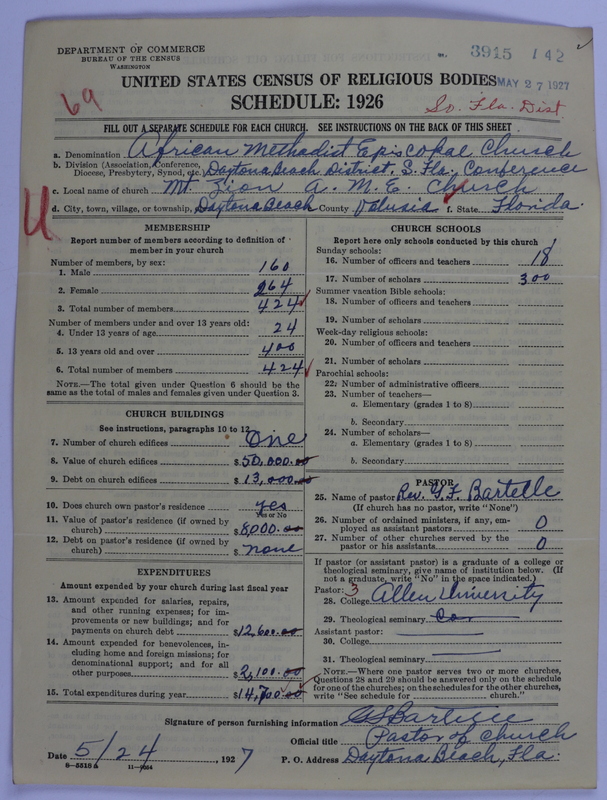 DEPARTMENT OF COMMERCE
BUREAU OF THE CENSUS
WASHINGTON
3915 142
UNITED STATES CENSUS OF RELIGIOUS BODIES
MAY 27 1927
SCHEDULE: 1926
69
So. Fla. Dist
FILL OUT A SEPARATE SCHEDULE FOR EACH CHURCH. SEE INSTRUCTIONS ON THE BACK OF THIS SHEET
a. Denomination African Methodist Episcopal Church
b. Division (Association, Conference, Diocese, Presbytery, Synod, etc. Daytona Beach District, S. Fla. Conference
c. Local name of church Mt. Zion A. M. E. Church
d. City, town, village, or township, Daytona Beach County Volusia f. State Florida.
MEMBERSHIP
Report number of members according to definition of
member in your church
Number of members, by sex:
1. Male 160
2. Female 264
3. Total number of members 424
Number of members under and over 13 years old:
4. Under 13 years of age 24
5. 13 years old and over 400
6. Total number of members 424
NOTE.—The total given under Question 6 should be the
same as the total of males and females given under Question 3.
CHURCH BUILDINGS
See instructions, paragraphs 10 to 12
7. Number of church edifices One
8. Value of church edifices $50,000.00
9. Debt on church edifices $13,000.00
10. Does church own pastor's residence yes
Yes or No
11. Value of pastor's residence (if owned by
church) $8,000.00
12. Debt on pastor's residence (if owned by
church) $ none
EXPENDITURES
Amount expended by your church during last fiscal year
13. Amount expended for salaries, repairs,
and other running expenses; for im-
provements or new buildings; and for
payments on church debt $12,600.00
14. Amount expended for benevolences, in-
cluding home and foreign missions; for
denominational support; and for all
other purposes $2,100.00
15. Total expenditures during year $14,700.00
CHURCH SCHOOLS
Report here only schools conducted by this church
Sunday schools:
16. Number of officers and teachers 18
17. Number of scholars 300
Summer vacation Bible schools:
18. Number of officers and teachers
19. Number of scholars
Week-day religious schools:
20. Number of officers and teachers
21. Number of scholars
Parochial schools:
22. Number of administrative officers
23. Number of teachers—
a. Elementary (grades 1 to 8)
b. Secondary
24. Number of scholars—
a. Elementary (grades 1 to 8)
b. Secondary
PASTOR
25. Name of pastor Rev. G. F. Bartelle
(If church has no pastor, write "None")
26. Number of ordained ministers, if any, em-
ployed as assistant pastors 0
27. Number of other churches served by the
pastor or his assistants 0
If pastor (or assistant pastor) is a graduate of a college or
theological seminary, give name of institution below. (If
not a graduate, write "No" in the space indicated.)
Pastor: 3
28. College Allen University
29. Theological seminary
Assistant pastor:
30. College
31. Theological seminary
NOTE.—Where one pastor serves two or more churches,
Questions 28 and 29 should be answered only on the schedule
for one of the churches; on the schedules for the other churches,
write "See schedule for church."
Signature of person furnishing information
Official title Pastor of Church
Date 5/24, 1927 P. O. Address Daytona Beach, Fla.